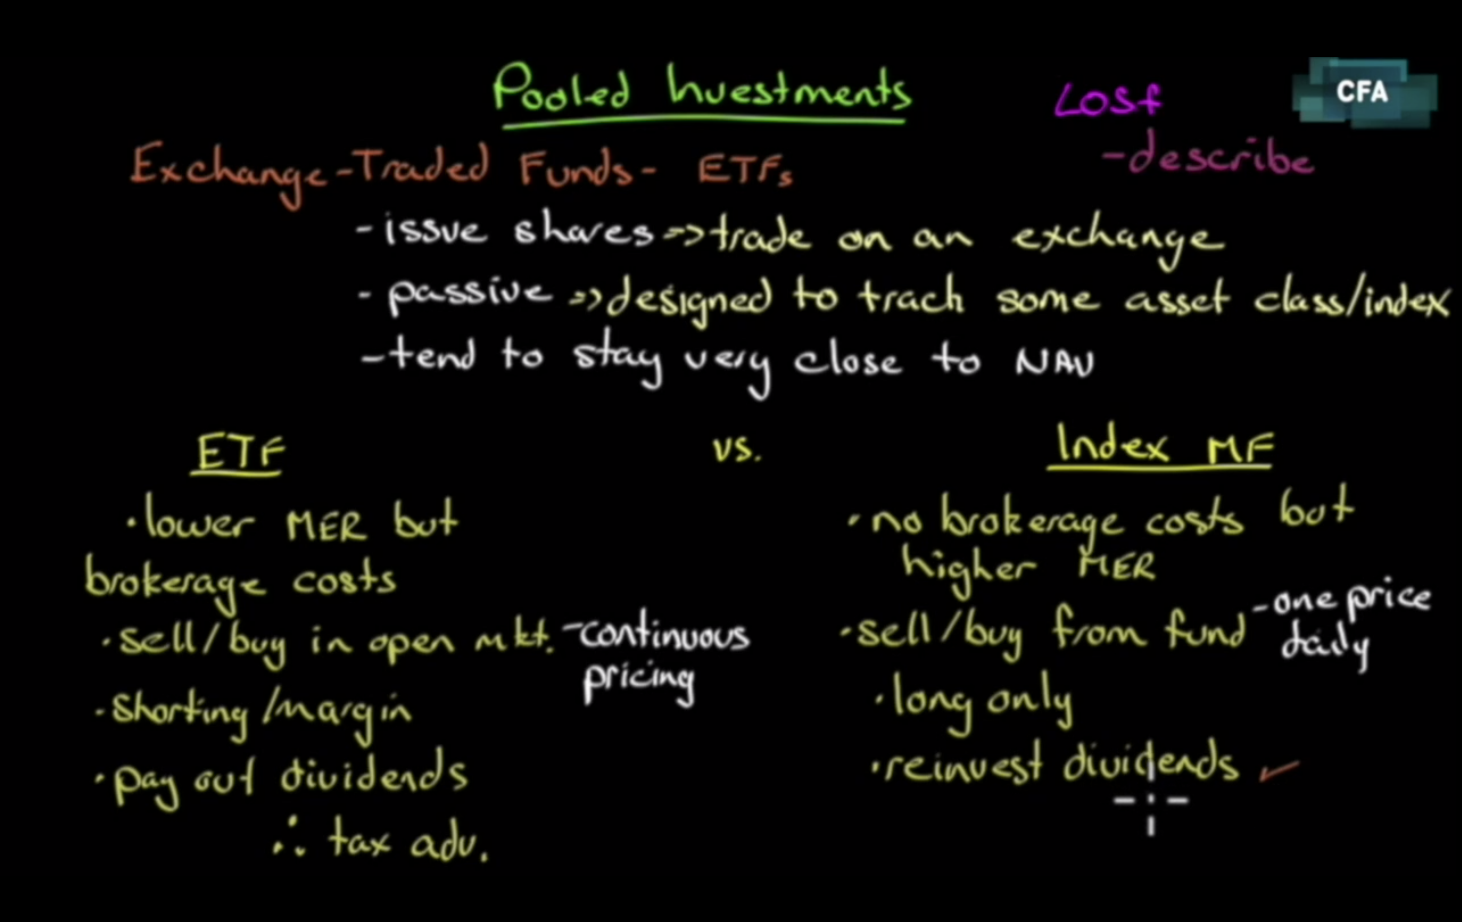 Pooled Investments
LOSf
CFA
-describe
Exchange-Traded Funds- ETFs
-issue shares=>trade on an exchange
- passive =>designed to track some asset class/index
-tend to stay very close to NAV
ETF vs. Index MF
·lower MER but
brokerage costs
·sell/buy in open mkt. -continuous
pricing
·shorting/margin
·pay out dividends
∴ tax adv.
·no brokerage costs but
higher MER
·sell/buy from fund -one price
daily
·long only
·reinvest dividends ✓